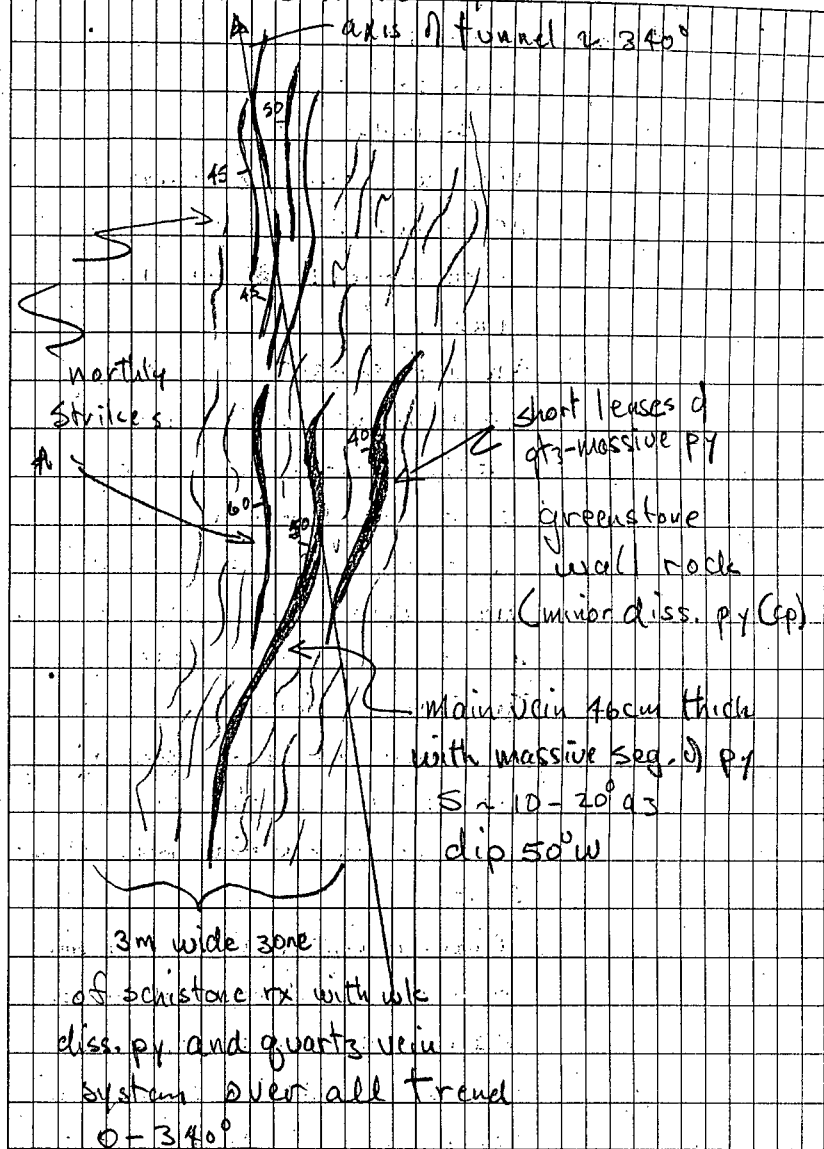 axis of tunnel ~ 340°
50
45
45
northly
strikes
short lenses of
qtz-massive py
40
greenstone
wall rock
(minor diss. py (cp)
60
50
main vein 46cm thick
with massive seg. of py
S ~ 10-20° az
dip 50°W
3m wide zone
of schistone rx with wk
diss. py and quartz vein
system over all trend
0-340°